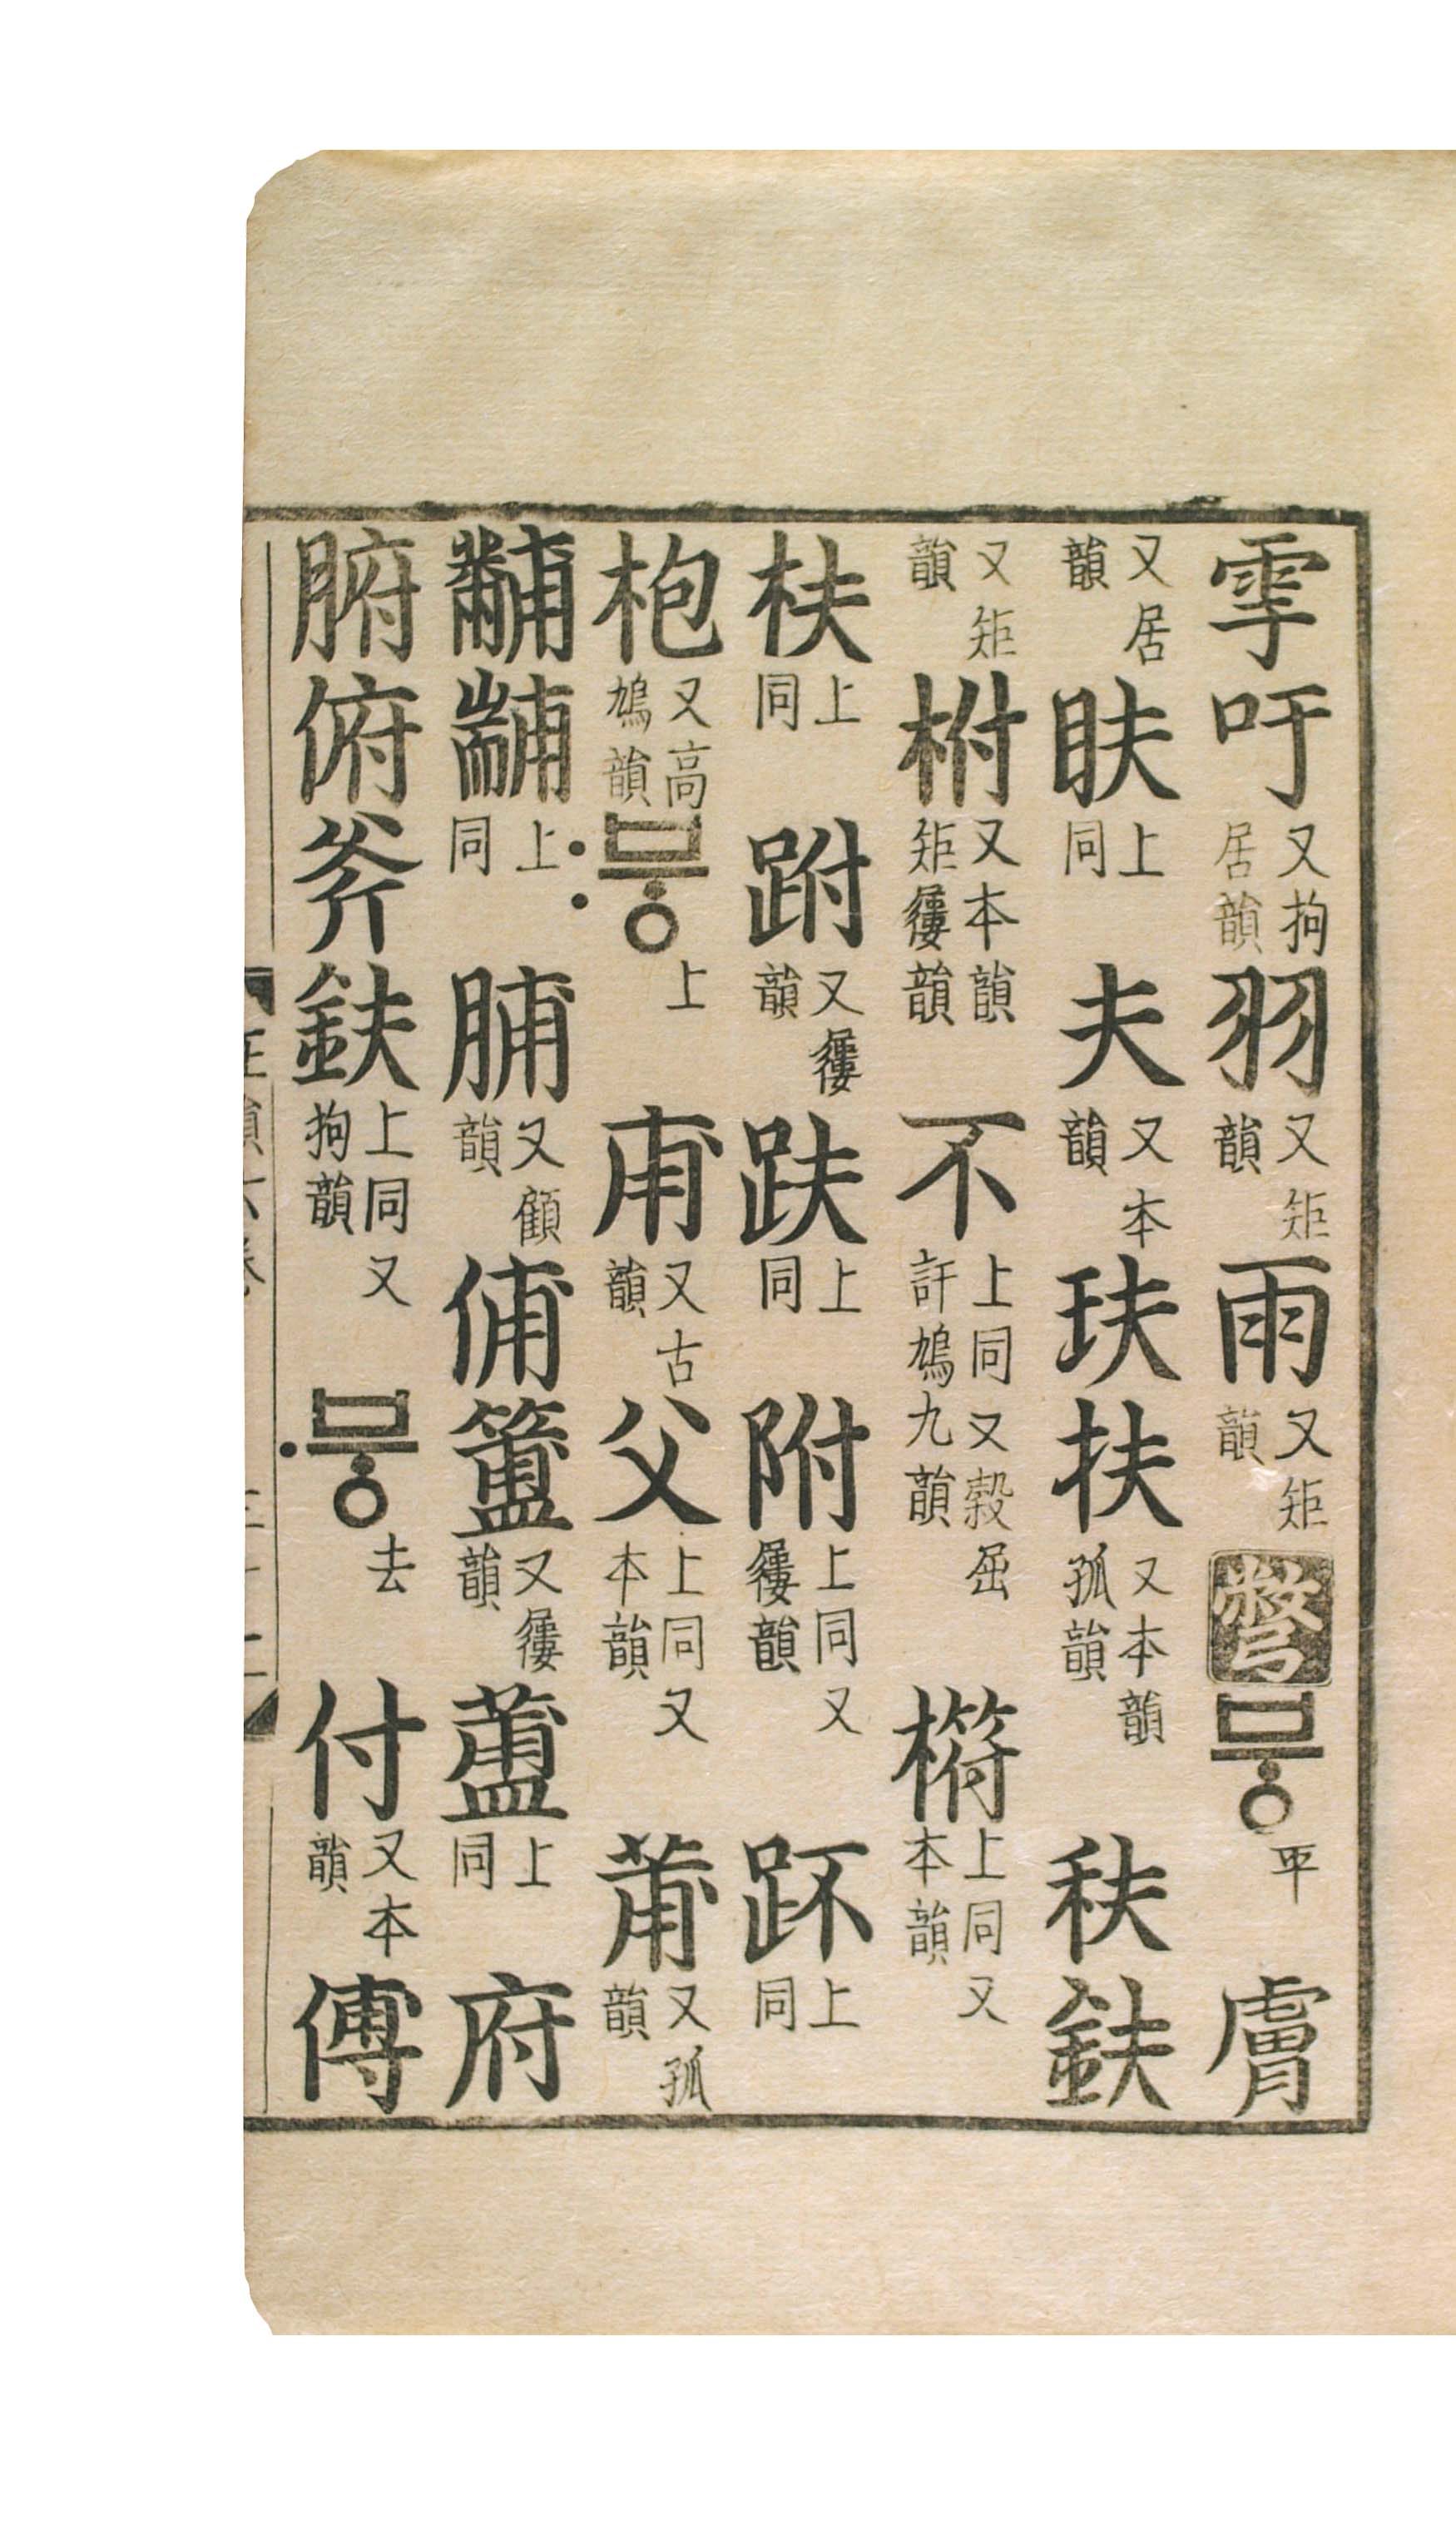 雩吁又拘居韻羽又矩韻雨又矩韻彆붕平膚
又居韻肤上同夫又本韻玞扶又本韻孤韻鈇
又矩韻柎又本韻矩屨韻不上同又穀屈訐鳩九韻上同又本韻
枎上同跗又屨韻趺上同附上同又屨韻上同
枹又高鳩韻〯붕上甫又古韻父上同又本韻莆又孤韻
黼上同脯又顧韻俌簠又屨韻上同府
腑俯斧鈇上同又拘韻〮붕去付又本韻傅